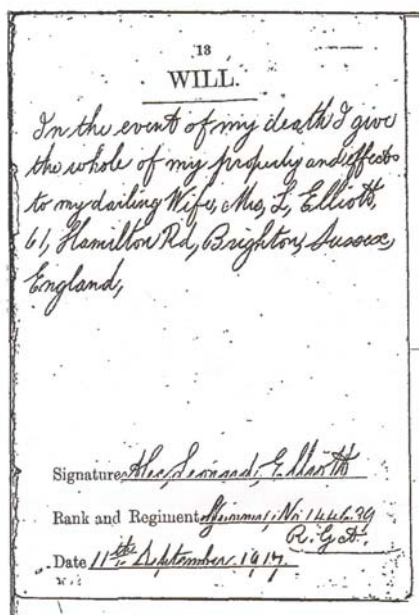 13
WILL.
In the event of my death I give
the whole of my property and effects
to my darling Wife, Mrs, L, Elliott,
61, Hamilton Rd, Brighton, Sussex,
England,
Signature Alec, Leonard, Elliott
Rank and Regiment Gunner, No
R.G.A.
Date 11th September. 1917.